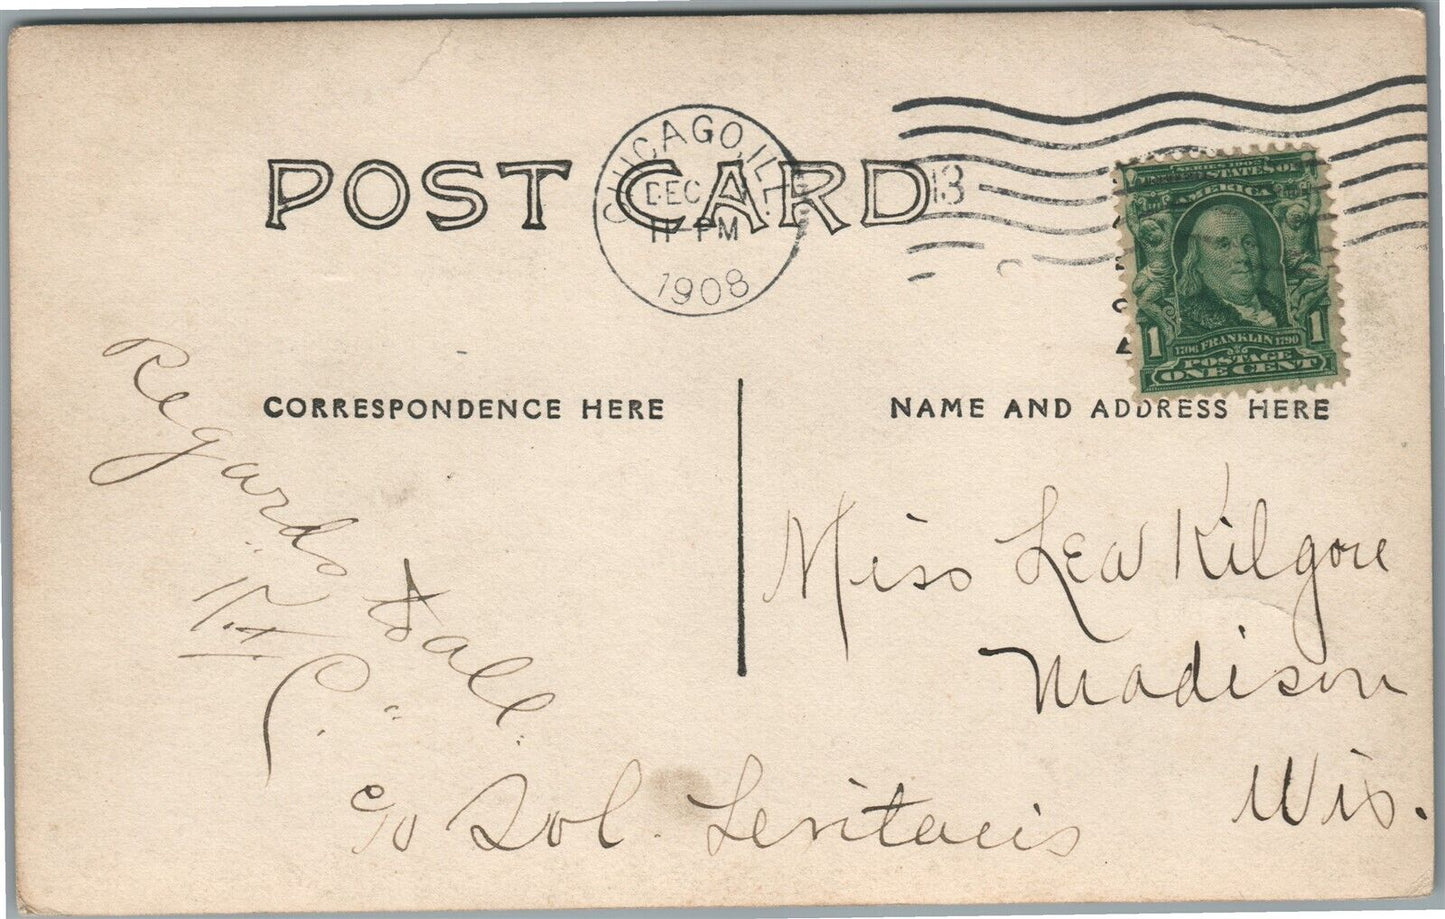 POST CARD
CHICAGO, ILL.
DEC
11-PM
1908
13
UNITED STATES OF
AMERICA
1 1
1706 FRANKLIN 1790
POSTAGE
ONE CENT
CORRESPONDENCE HERE
Regards to all.
NAME AND ADDRESS HERE
Miss Lea Kilgore
Madison
Wis.
c/o Sol.